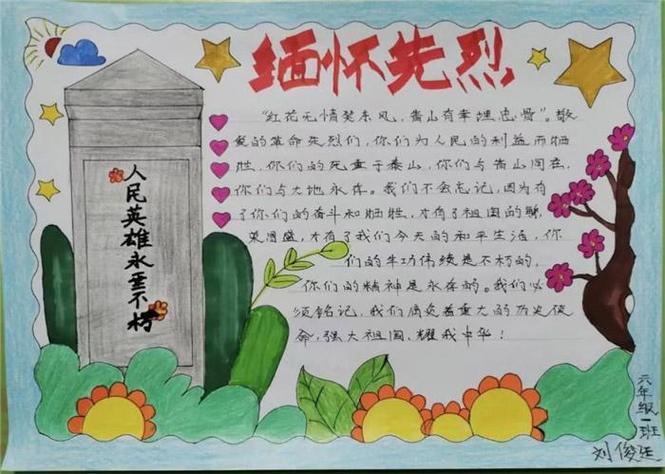 缅怀先烈
"红花无情笑东风，青山有幸埋忠骨"。敬
爱的革命先烈们，你们为人民的利益而牺
牲，你们的死重于泰山，你们与青山同在，
你们与大地永存。我们不会忘记，因为有
了你们的奋斗和牺牲，才有了祖国的繁
荣昌盛，才有了我们今天的和平生活，你
们的丰功伟绩是不朽的，
你们的精神是永存的。我们必
须铭记，我们肩负着重大的历史使
命，强大祖国，耀我中华！
人民英雄永垂不朽
六年级一班
刘俊廷